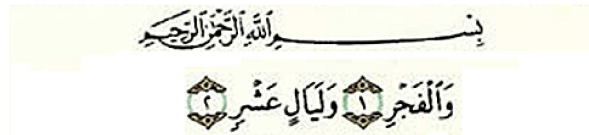 بِسْمِ اللَّهِ الرَّحْمَٰنِ الرَّحِيمِ
وَالْفَجْرِ ١ وَلَيَالٍ عَشْرٍ ٢